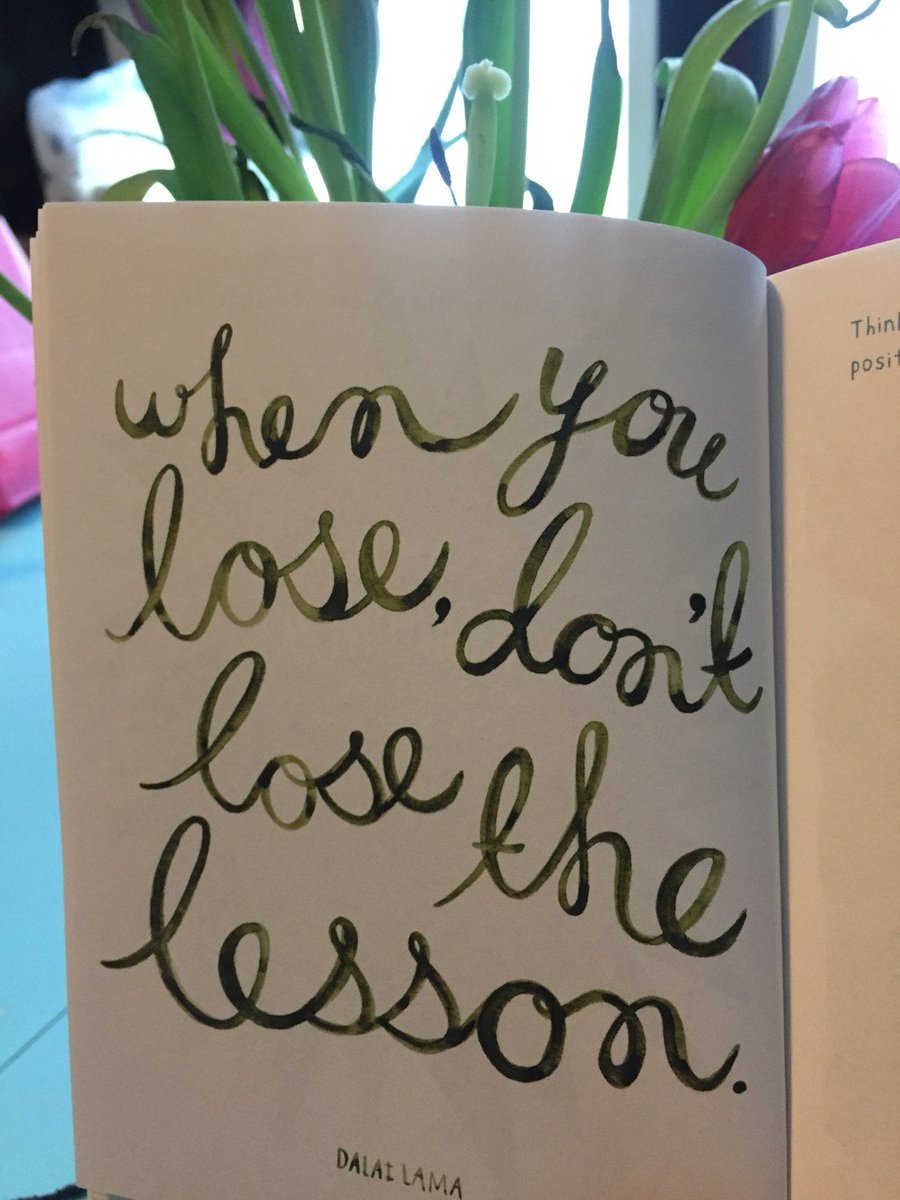 when you
lose, don't
lose the
lesson.
DALAI LAMA